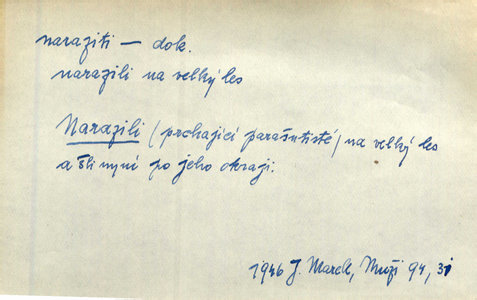 naraziti — dok.
narazili na velký les
Narazili (prchající parašutisté) na velký les
a šli nyní po jeho okraji.
1946 J. Marek, Muži 94,